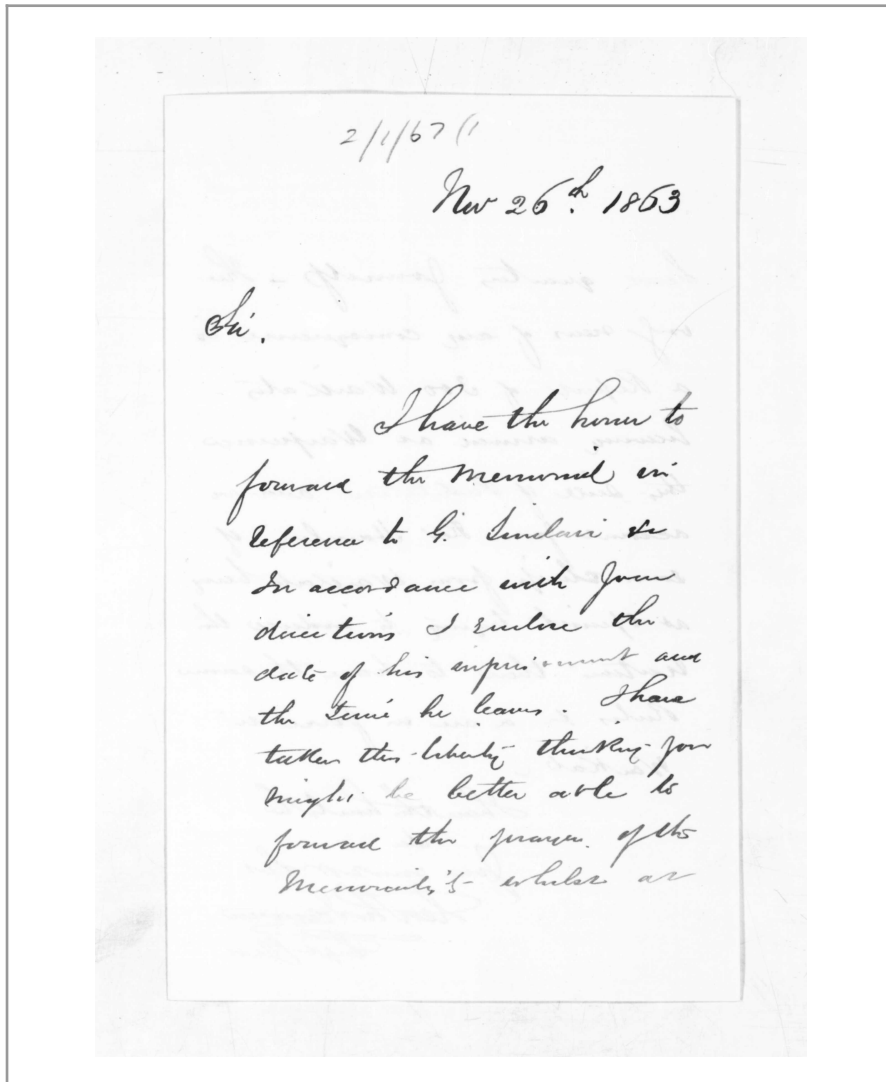 2/1/67 (1
Nov 26th 1863
Sir.
I have the honor to
forward the Memorial in
reference to G. Sinclair &c
In accordance with your
directions I enclose the
date of his imprisonment and
the time he leaves. I have
taken this liberty thinking you
might be better able to
forward the prayer of the
Memorialists whilst at